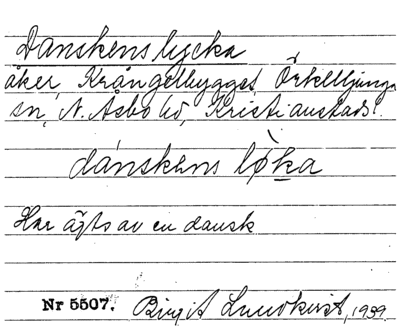 Danskens lycka
åker, Krångelbygget, Örkelljunga
sn, N. Åsbo hd, Kristianstads l.
dánskens lø̀ka
Har ägts av en dansk
Nr 5507. Birgit Lundkvist, 1939